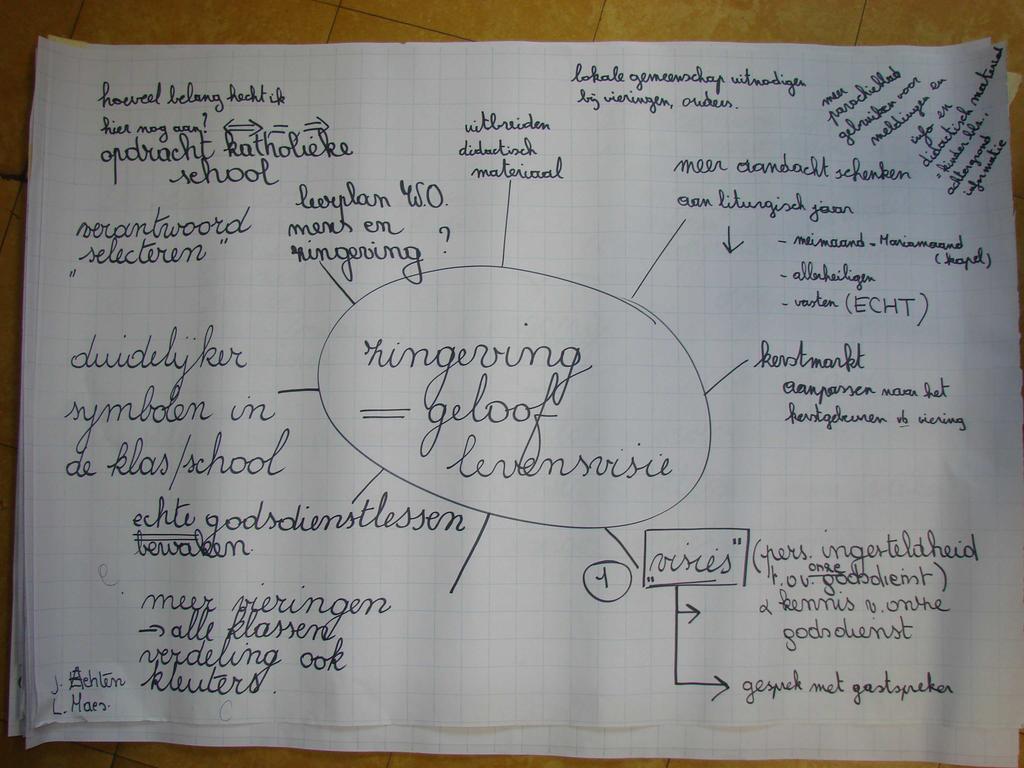 hoeveel belang hecht ik
hier nog aan? ⟺ = ⇒
opdracht katholieke
school
verantwoord
"selecteren"
leerplan W.O.
mens en
zingeving ?
uitbreiden
didactisch
materiaal
lokale gemeenschap uitnodigen
bij vieringen, ouders.
meer
parochieblad
gebruiken voor
meldingen en
info en
didactisch material
- kinderbl..
achtergrond
informatie
meer aandacht schenken
aan liturgisch jaar
↓
- meimaand - Mariamaand
(kapel)
- allerheiligen
- vasten (ECHT)
zingeving
= geloof
levensvisie
kerstmarkt
aanpassen naar het
kerstgebeuren vb viering
duidelijker
symbolen in
de klas/school
echte godsdienstlessen
bewaken.
meer vieringen
→ alle klassen
verdeling ook
kleuters.
1
"visies"
(pers. ingesteldheid
t.ov. onze godsdienst)
& kennis v. onze
godsdienst
gesprek met gastspreker
J. Aehten
L. Maes.